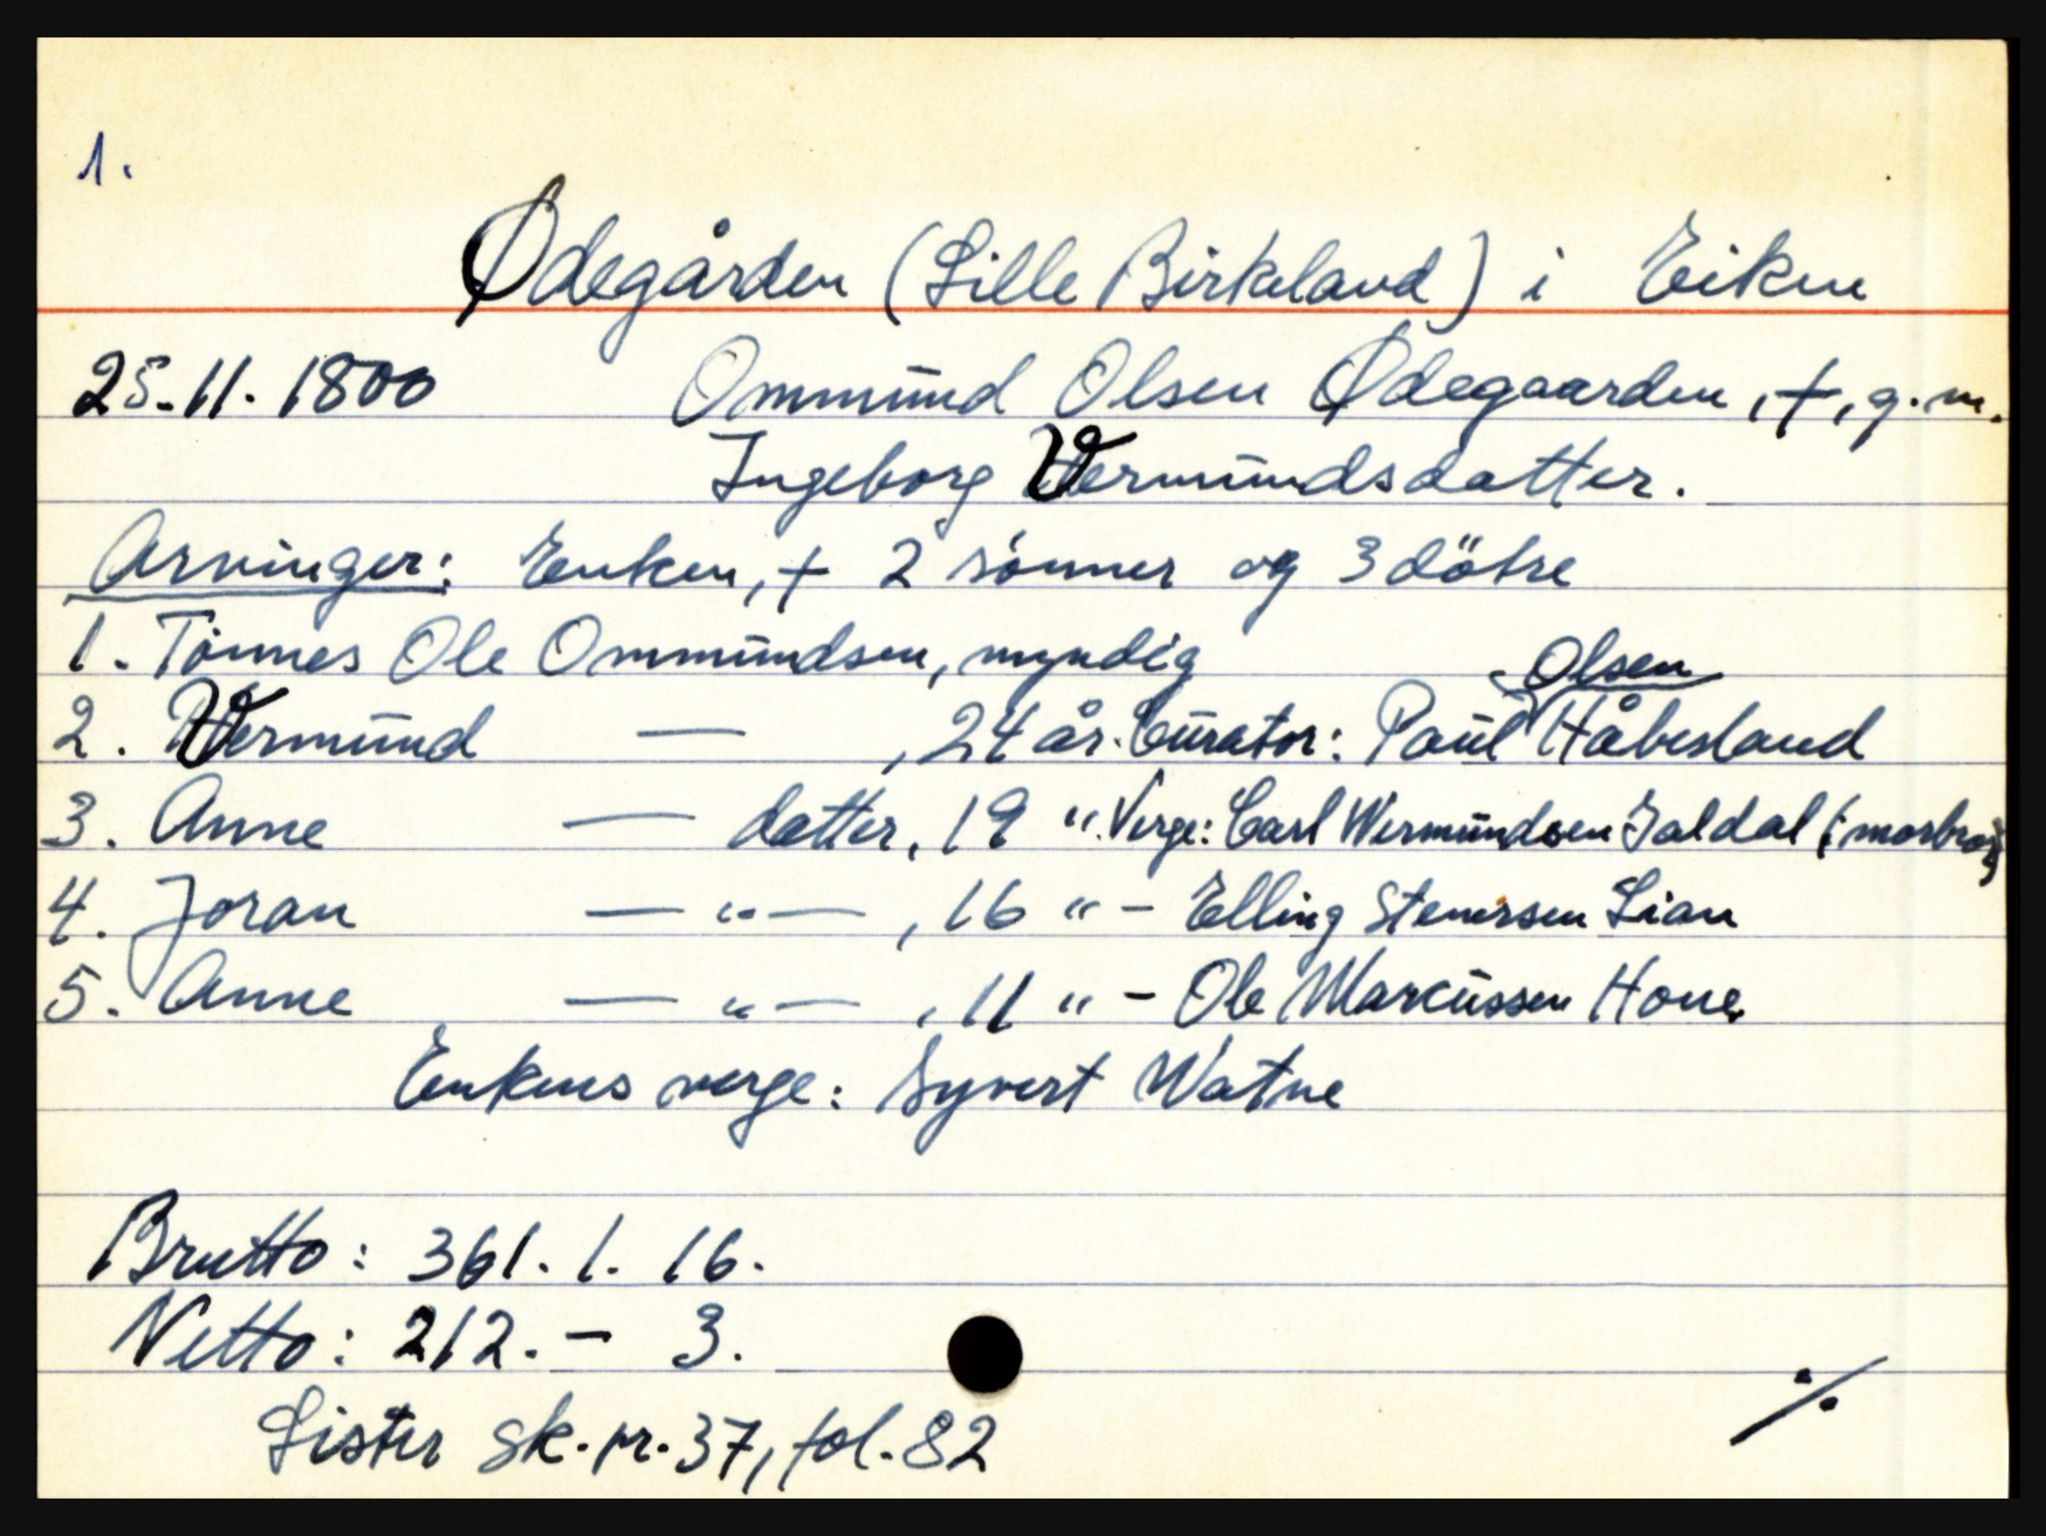 1.
Ødegården (Lille Birkeland) i Eiken
25.11.1800 Ommund Olsen Ødegaarden, †, g.m.
Ingeborg Vermundsdatter.
Arvinger: Enken, + 2 sønner og 3 dötre
1. Tønnes Ole Ommundsen, myndig
Olsen
2. Vermund — , 24 år. Curator: Paul Håbesland
3. Anne — datter, 19 " Verge: Carl Wermundsen Galdal (: morbror)
4. Joran — " — , 16 " - Elling Stenersen Lian
5. Anne — " — , 11 " - Ole Marcussen Houe.
Enkens verge: Syvert Watne
Brutto: 361. 1. 16.
Netto: 212. - 3.
Lister sk. pr. 37, fol. 82
./.